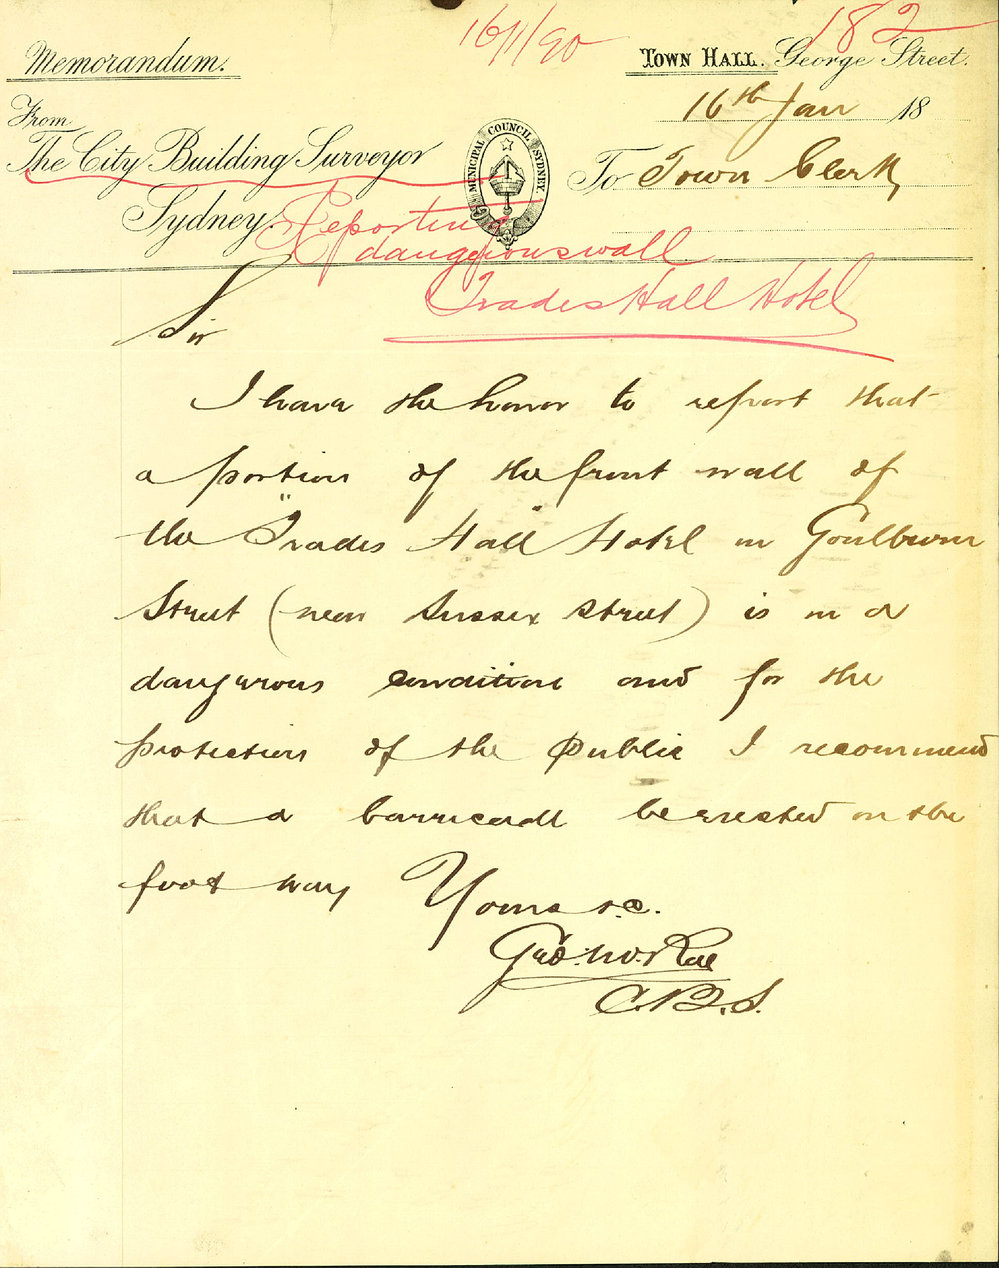 16/1/90
182
Memorandum.
TOWN HALL. George Street.
16th Jan 18
From
The City Building Surveyor
Sydney.
MUNICIPAL COUNCIL SYDNEY.
To Town Clerk
Reporting
dangerous wall
Trades Hall Hotel
Sir
I have the honor to report that
a portion of the front wall of
the "Trades Hall" Hotel in Goulburn
Street (near Sussex Street) is in a
dangerous condition and for the
protection of the public I recommend
that a barricade be erected on the
foot way
Yours &c.
Geo. McRae
C.B.S.